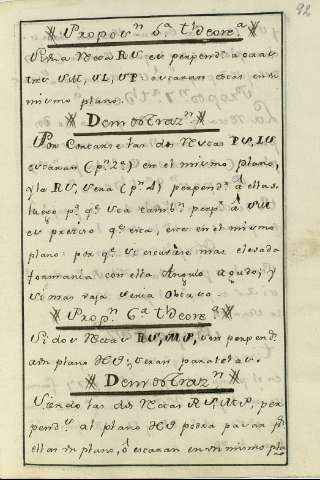 92
Propos.n 5.a theore.a
Si una Recta RS, es perpend.r a otras
tres SM, SL, SP: estaran estas en un
mismo plano.
Demostraz.n
Por cortarse las dos Rectas PS, LS
estaran (p.n 2.a) en el mismo plano,
y la RS, sera (p.n 4) perpend.r á ellas,
luego p.a q.e sea tamb.n perp.r á SM
es preciso q.e esta, este en el mismo
plano: por q.e si estubiese mas elevada
formaria con ella Angulo agudo; y
si mas baja seria obtuso.
Prop.n 6.a theore.a
Si dos Rectas RS, MP, son perpend.
a un plano seran paralelas.
Demostraz.n
Siendo las dos Rectas RS, MP, per
pend.s al plano podra pasar p.r
ellas un plano, ó estaran en un mismo pla